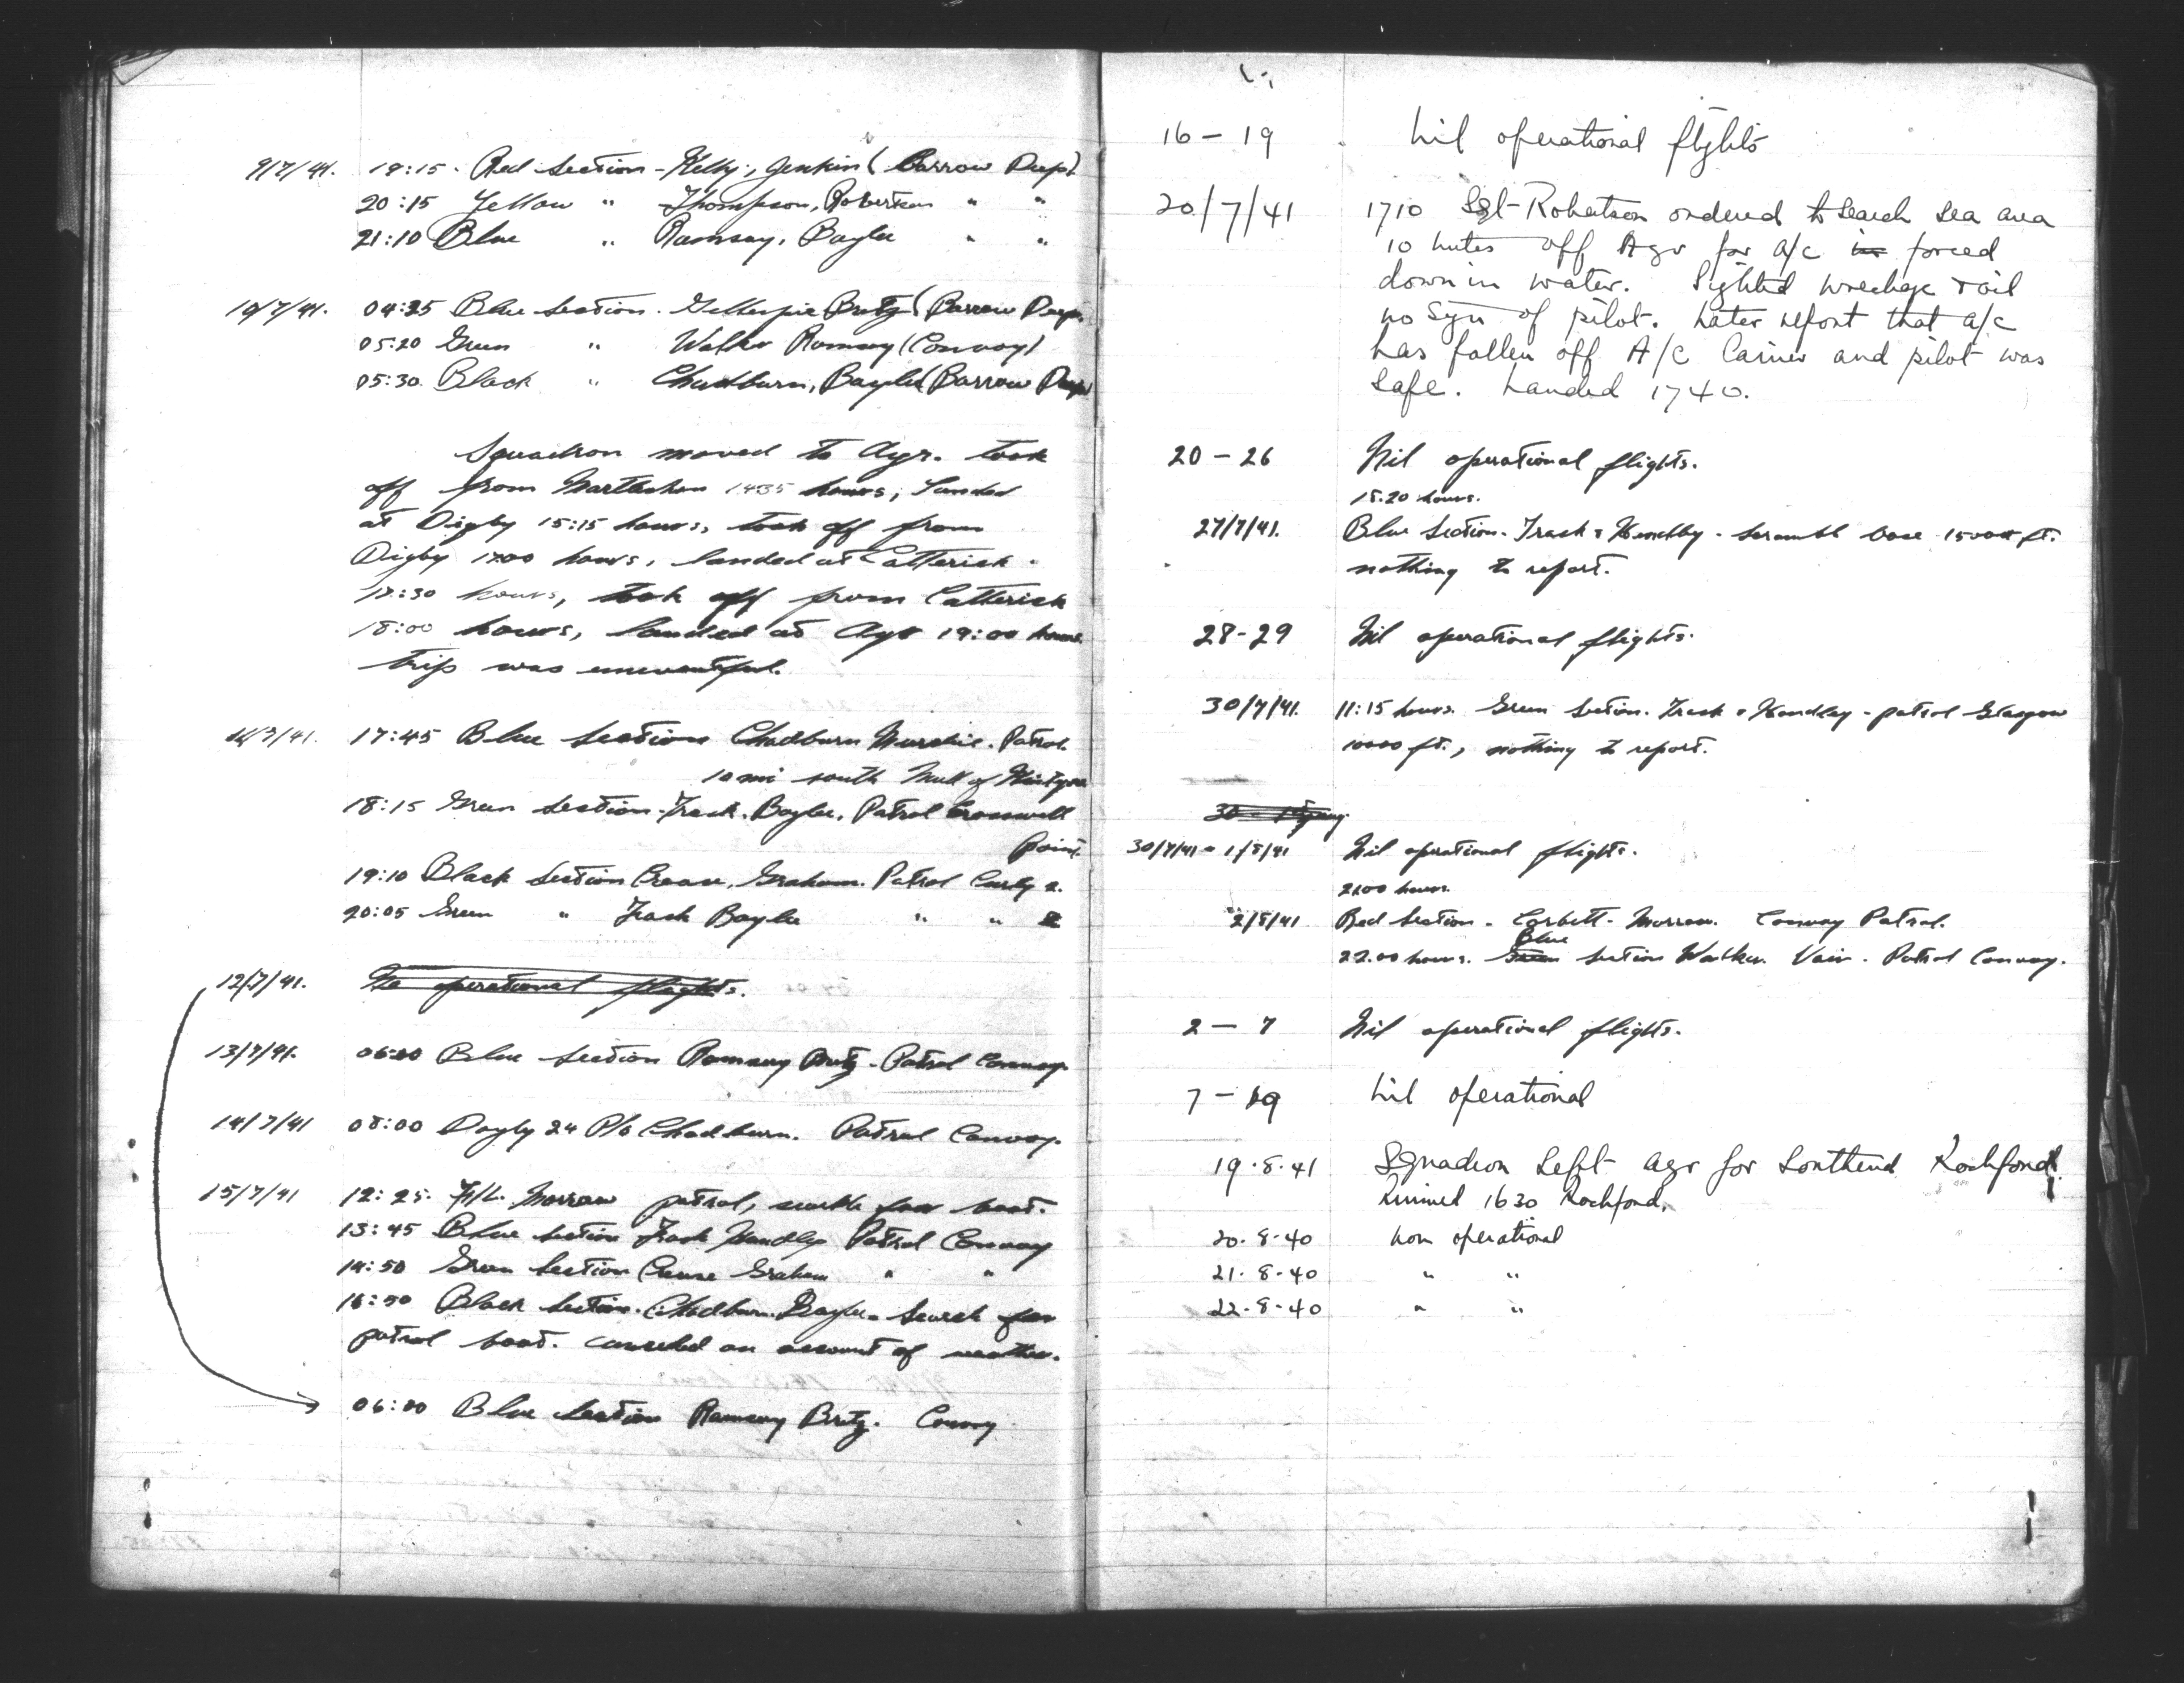 9/7/41. 19:15. Red Section - Kelly, Jenkin (Barrow Deep)
20:15 Yellow " Thompson, Robertson " "
21:10 Blue " Ramsay, Baylee " "
10/7/41. 04:25 Blue Section. Gillespie Bretz (Barrow Deep.
05:20 Green " Walker Ramsay (Convoy)
05:30. Black " Chadburn, Baylee (Barrow Deep
Squadron moved to Ayr. took
off from Martlesham 1435 hours, landed
at Digby 15:15 hours, took off from
Digby 1700 hours, landed at Catterick.
17:30 hours, took off from Catterick
18:00 hours, landed at Ayr 19:00 hours.
trip was uneventful.
11/7/41. 17:45 Blue Section Chadburn Murchie. Patrol.
10 mi south Mull of Kintyre
18:15 Green Section - Trask. Baylee. Patrol
Point.
19:10 Black Section Crease, Graham. Patrol
20:05 Green " Trask Baylee " "
12/7/41. No operational flights.
13/7/41. 06:00 Blue Section Ramsay Bretz - Patrol Convoy.
14/7/41 08:00 24 P/O Chadburn. Patrol Convoy.
15/7/41 12:25. F/L. Morrow patrol, search for boat.
13:45 Blue Section Trask Handley Patrol Convoy
14:50 Green Section Crease Graham " "
16:50 Black Section. Chadburn. Baylee. Search for
patrol boat. cancelled on account of weather.
06:00 Blue Section Ramsay Bretz. Convoy
16 - 19 Nil operational flights
20/7/41 1710 Sgt Robertson ordered to search sea area
10 miles off Ayr for a/c in forced
down in water. Sighted wreckage & oil
no sign of pilot. Later report that a/c
has fallen off A/C Carrier and pilot was
safe. Landed 1740.
20 - 26 Nil operational flights.
15.20 hours.
27/7/41. Blue Section. Trask & Handley - scramble base 15000 ft.
nothing to report.
28-29 Nil operational flights.
30/7/41. 11:15 hours. Green Section. Trask & Handley - patrol Glasgow
10000 ft., nothing to report.
30/7/41 - 1/8/41 Nil operational flights.
2100 hours.
2/8/41 Red Section - Corbett - Morrow. Convoy Patrol.
Blue
22.00 hours. Green Section Walker. Vair. Patrol Convoy.
2 - 7 Nil operational flights.
7 - 19 Nil operational
19.8.41 Squadron left Ayr for Southend Rochford
Arrived 1630 Rochford.
20.8.40 Non operational
21.8.40 " "
22.8.40 " "